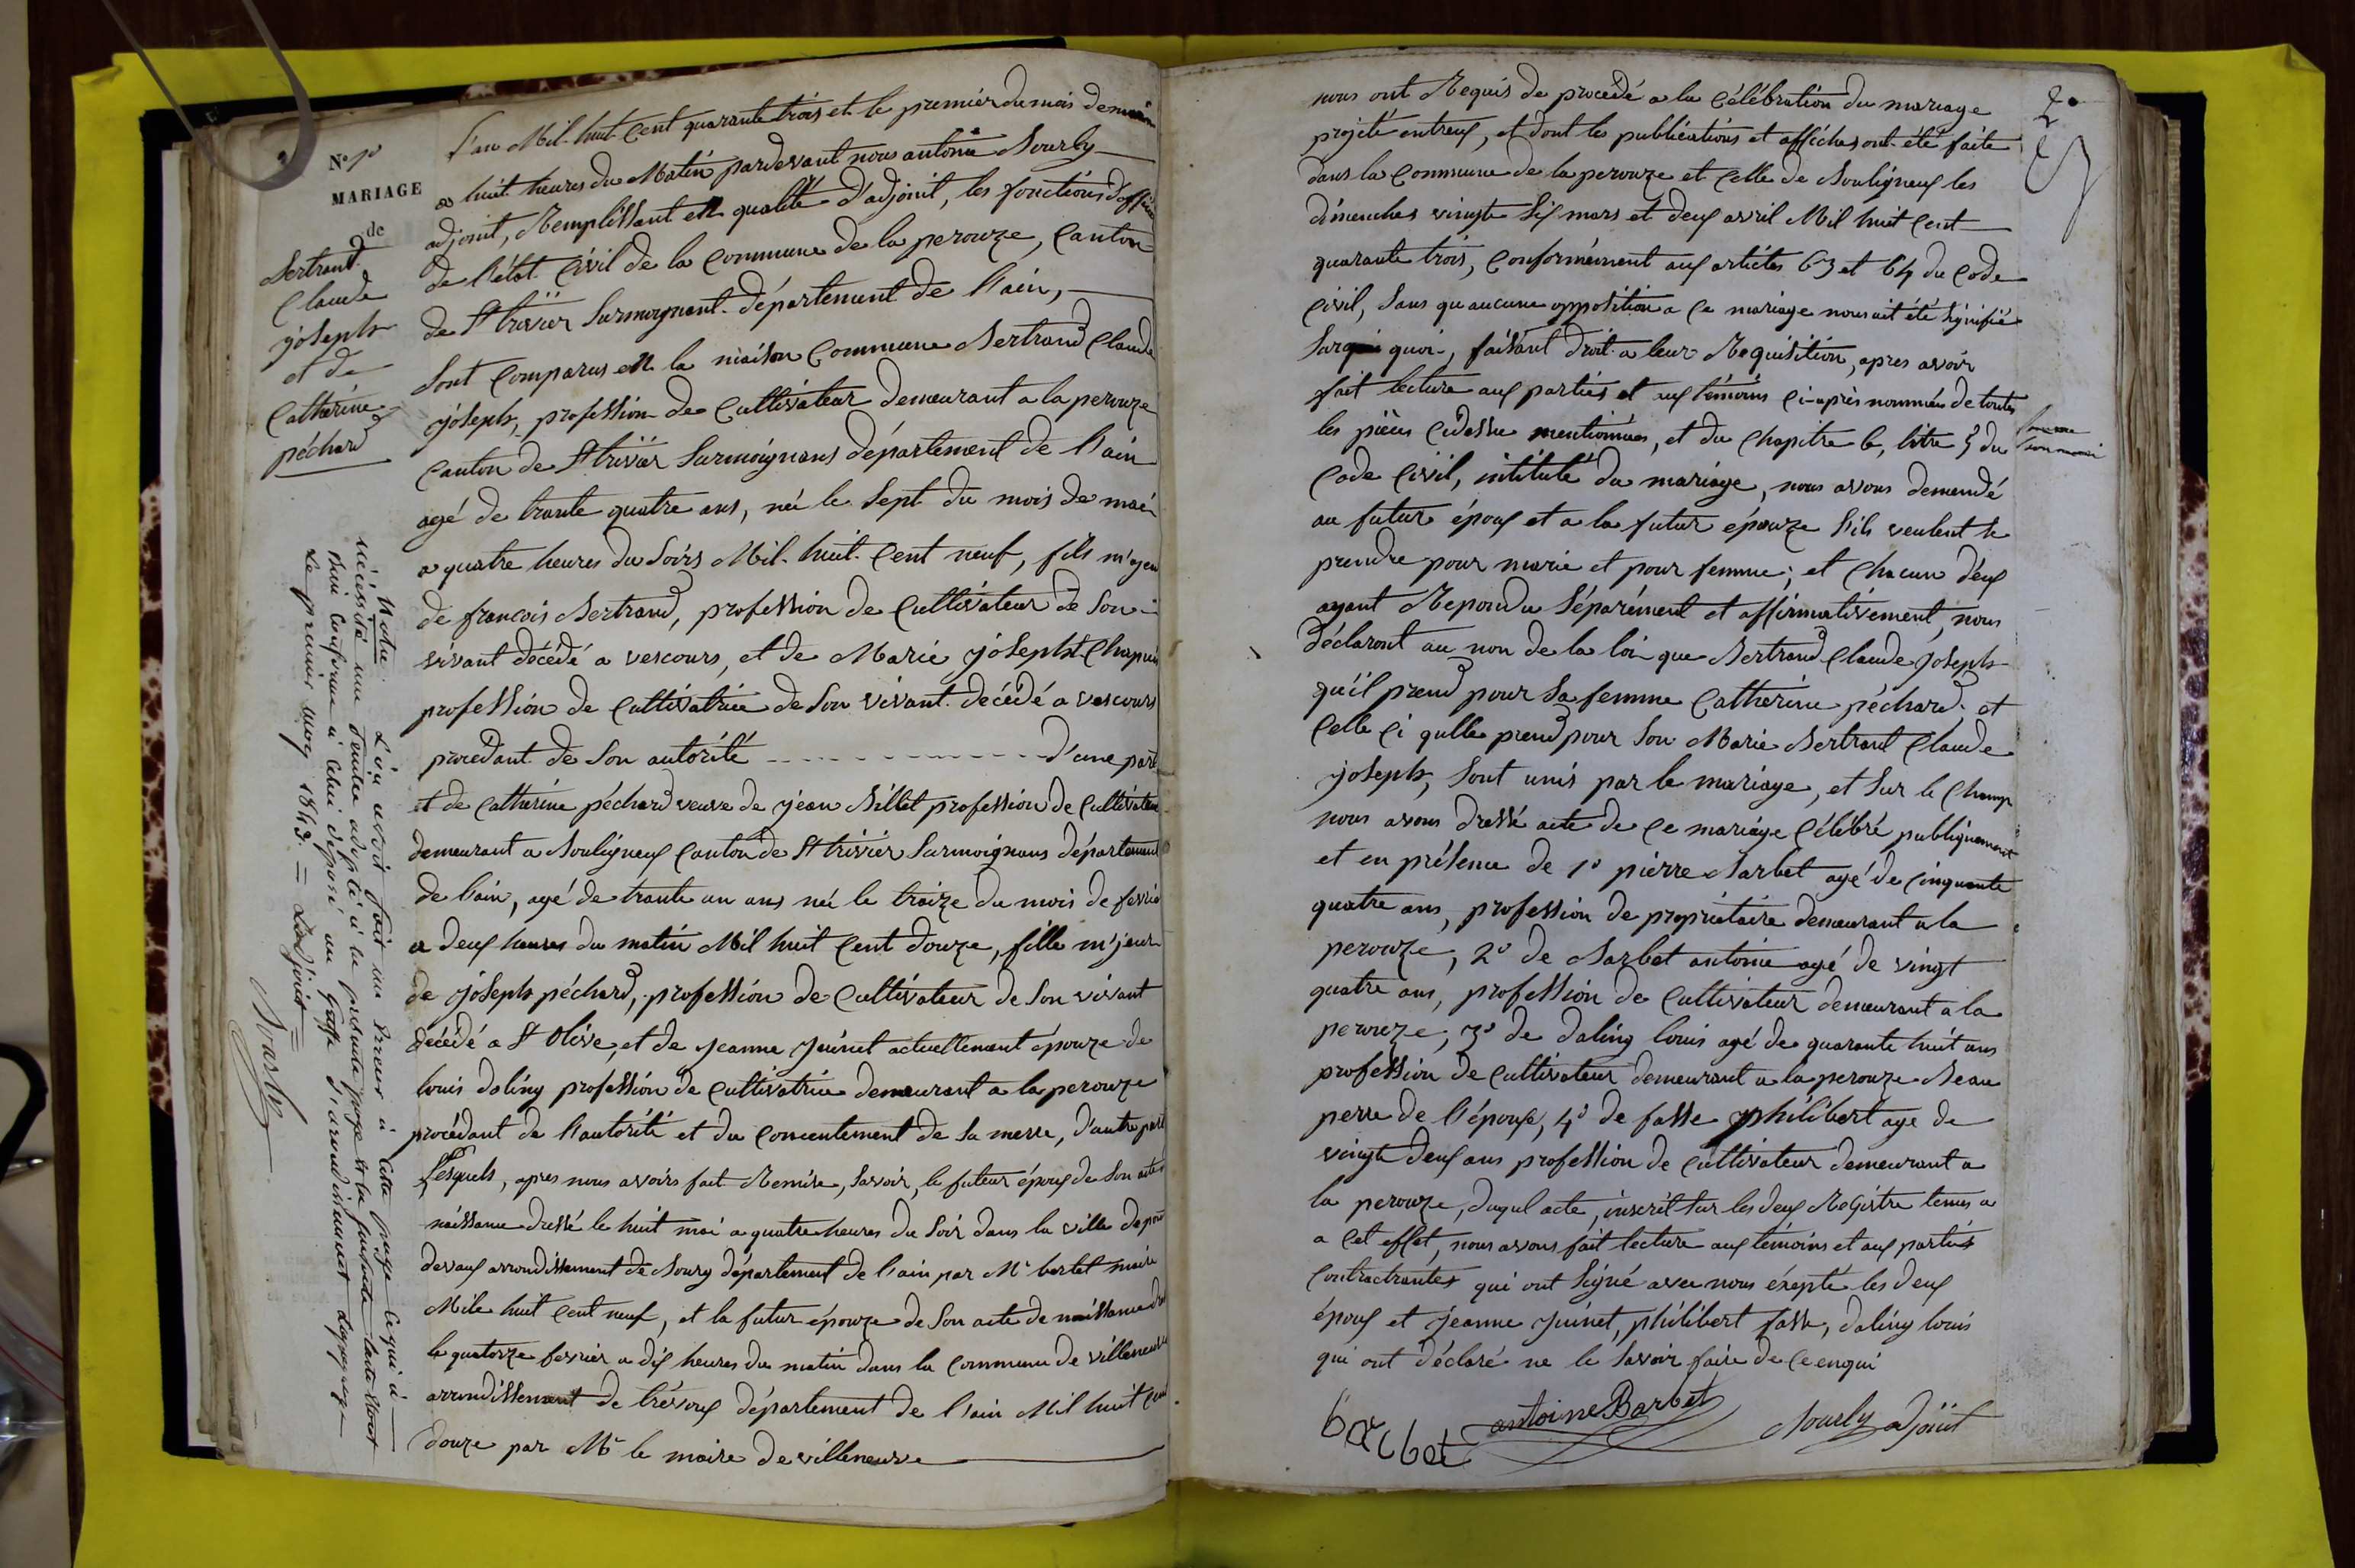 N° 1°
MARIAGE
de
Bertrand
Claude
joseph
et de
Catherine
péchard
L'an Mil huit Cent quarante trois et le premier du mois de mai
a huit heures du Matin pardevant nous antoine Bourly
adjoint, Remplissant en qualité d'adjoint, les fonctions d'officier
de l'état Civil de la Commune de la perouze, Canton
de St trivier Surmoignant département de l'ain,
Sont Comparus en la maison Commune Bertrand Claude
joseph, profession de Cultivateur demeurant a la perouze
Canton de St trivier Surmoignans département de l'ain
agé de trante quatre ans, né le Sept du mois de mai
a quatre heures du Soirs Mil huit Cent neuf, fils m'ajeu
de francois Bertrand, profession de Cultivateur de Son
vivant décédé a vescours, et de Marie josepht Chapuis
profession de Cultivatrice de Son vivant décédé a vescours
procedant de Son autorité d'une part
et de Catherine péchard veuve de jean Billet profession de Cultivateur
demeurant a Bouligneux Canton de St trivier Surmoignans département
de l'ain, agé de trante un ans né le traize du mois de fevrié
a deux heures du matin Mil huit Cent douze, fille m'jeur
de joseph péchard, profession de Cultivateur de Son vivant
décédé a St Olive, et de jeanne juinet actuellement épouze de
louis daling profession de Cultivatrice demeurant a la perouze
procédant de l'autorité et du Concentement de Sa merre, d'autre part
Lesquels, apres nous avoirs fait Remise, Savoir, le futeur époux de Son acte
naissance dressé le huit mai a quatre heures du Soir dans la ville de pont
devaux arrondissement de Bourg département de l'ain par Mr bertet maire
Mile huit Cent neuf, et la futur épouze de Son acte de naissance
le quatorze fevrier a dix heures du matin dans la Commune de villeneuve
arrondissement de trévoux département de l'ain Mil huit Cent
douze par Mr le maire de villeneuve
Notta: L'on avoit fait un Erreur à Cette page Ce qui à
nécéssité une feuille adaptée à la présente page et la suivante
Suis Conforme à Celui déposé au Greffe d'arrondissement
Le premier may 1843. = L'adjoint =
Bourly
nous ont Requis de procédé a la Célébration du mariage
projeté entreux, et dont les publications et affiches ont été faite
dans la Commune de la perouze et Celle de Bouligneux les
dimenches vingte Six mars et deux avril Mil huit Cent
quarante trois, Conformément aux articles 63 et 64 du Code
Civil, Sans qu'aucune opposition a Ce mariage nous ait été Signifié
Sur quoi, faisant droit a leur Requisition, apres avoir
fait lecture aux parties et aux témoins Ci-après nommés de toutes
les pièces Cidessu mentionnées, et du Chapitre 6, titre 5 du
Code Civil, intitulé du mariage, nous avons demendé
au futur époux et a la futur épouze S'ils veulent Se
prendre pour marie et pour femme; et Chacun d'eux
ayant Repondu Séparément et affirmativement, nous
déclaront au non de la loi que Bertrand Claude joseph
qu'il prend pour Sa femme Catherine péchard, et
Celle Ci qulle prend pour Son Marie Bertrand Claude
joseph, Sont unis par le mariage, et Sur le Champ
nous avons dressé acte de Ce mariage Célébré publiquement
et en présence de 1° pierre Barbet agé de Cinquante
quatre ans, profession de propriétaire demeurant a la
perouze, 2° de Barbet antoine agé de vingt
quatre ans, profession de Cultivateur demeurant a la
perouze; 3° de daling louis agé de quarante huit ans
profession de Cultivateur demeurant a la perouze Beau
perre de l'épouze, 4° de fasse philibert age de
vingte deux ans profession de Cultivateur demeurant a
la perouze, duquel acte, inscrit Sur les deux Registre tenus a
a Cet effet, nous avons fait lecture aux témoins et aux parties
Contractrantes qui ont Signé avec nous éxepté les deux
époux et jeanne juinet, philibert fasse, daling louis
qui ont déclaré ne le Savoir faire de Ce enqui
barbet antoine Barbet Bourly adjoint